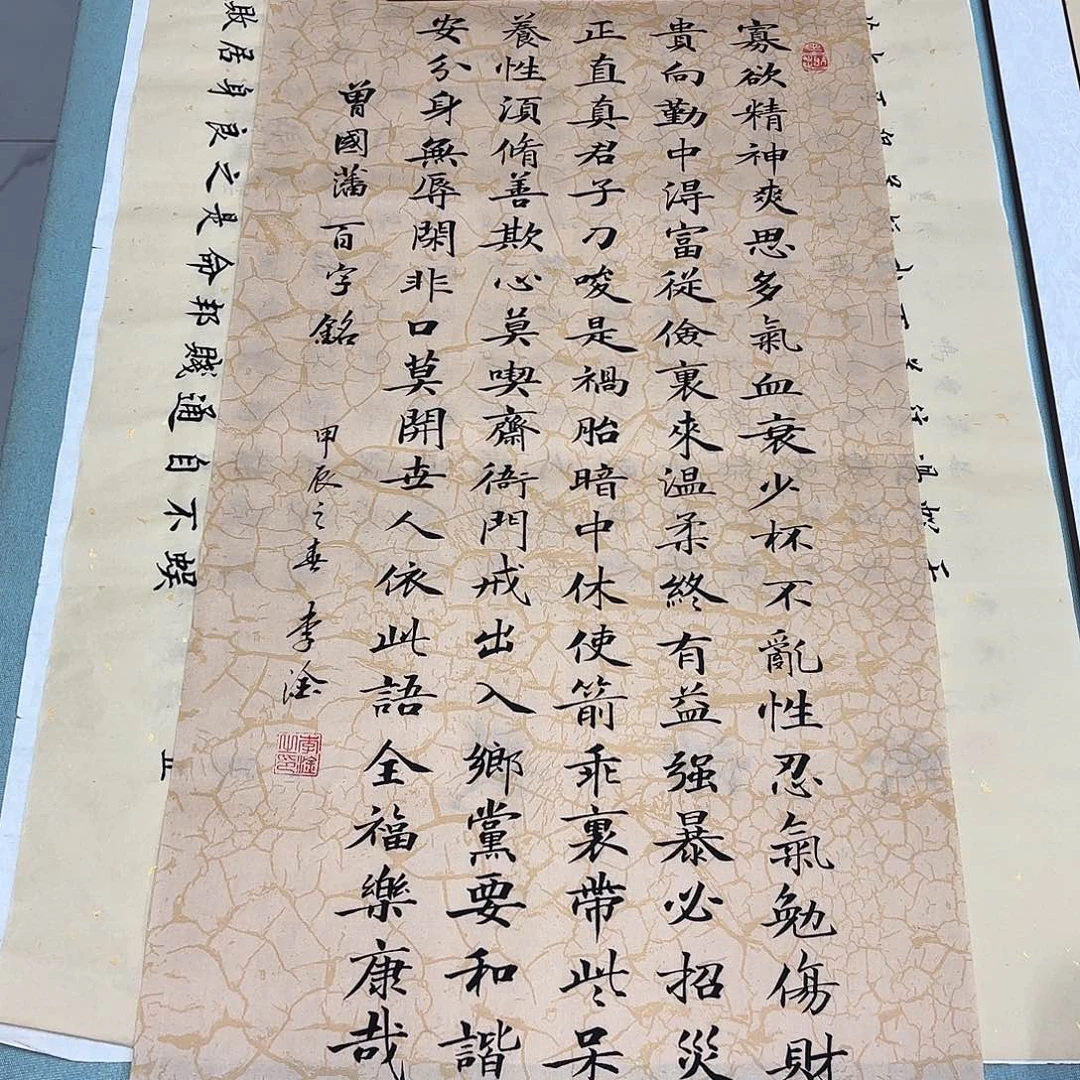 寡欲精神爽思多氣血衰少杯不亂性忍氣勉傷財
貴向勤中淂富從儉裏來温柔終有益强暴必招災
正直真君子刀唆是禍胎暗中休使箭乖裏帶些呆
養性湏脩善欺心莫喫齋衙門戒出入鄉黨要和諧
安分身無辱閑非口莫開世人依此語全福樂康哉
曾國藩百字銘
甲辰之春 李淦
李淦之印
居身良之是命邦賤通自不